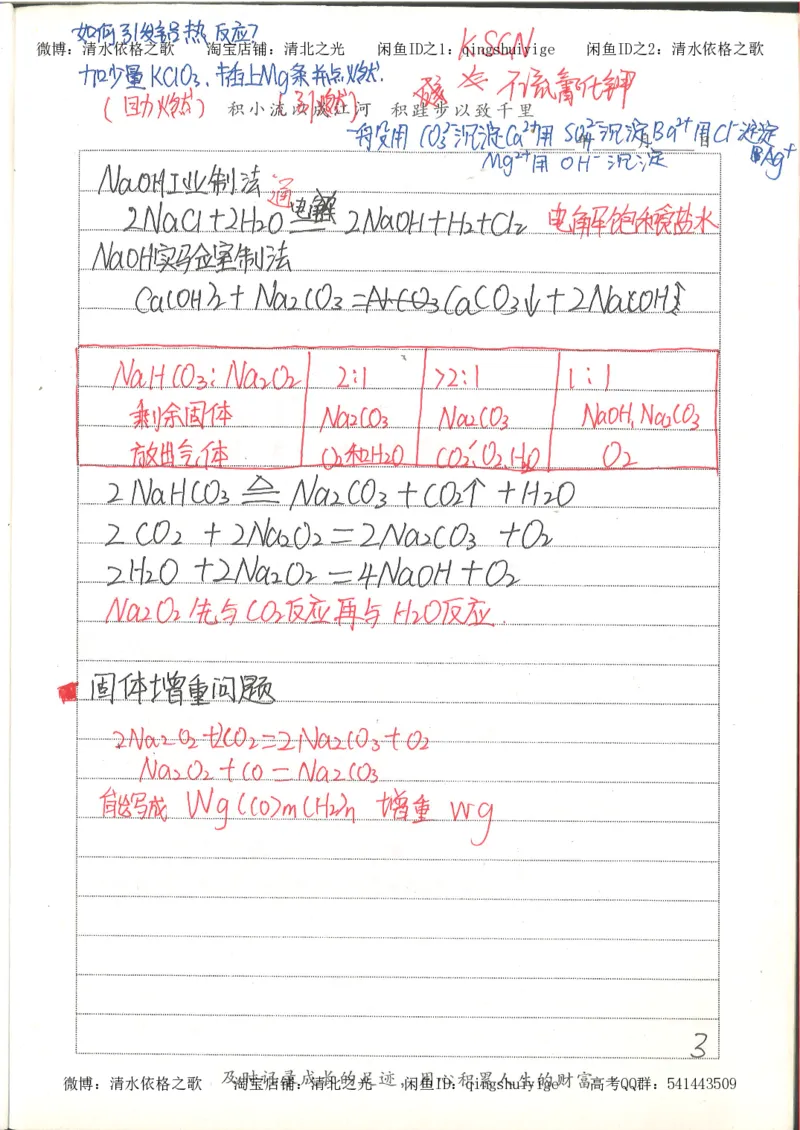 如何引发铝热反应?
微博：清水依格之歌 淘宝店铺：清北之光 闲鱼ID之1：qingshuiyige 闲鱼ID之2：清水依格之歌
KSCN
加少量KClO3、插上Mg条并点燃.
(助燃) (引燃)
不 硫氰化钾
积小流以成江河 积跬步以致千里
一般用CO3²⁻沉淀Ca²⁺用SO4²⁻沉淀Ba²⁺用Cl⁻沉淀Ag⁺
Mg²⁺用OH⁻沉淀
NaOH工业制法
2NaCl+2H2O 通电 2NaOH+H2+Cl2 电解饱和食盐水
NaOH实验室制法
Ca(OH)2+Na2CO3=CaCO3↓+2NaOH
NaHCO3:Na2O2 2:1 >2:1 1:1
剩余固体 Na2CO3 Na2CO3 NaOH, Na2CO3
放出气体 O2和H2O CO2、O2、H2O O2
2NaHCO3 △ Na2CO3+CO2↑+H2O
2CO2+2Na2O2=2Na2CO3+O2
2H2O+2Na2O2=4NaOH+O2
Na2O2先与CO2反应再与H2O反应.
固体增重问题
2Na2O2+2CO2=2Na2CO3+O2
Na2O2+CO=Na2CO3
能写成 Wg(CO)m(H2)n 增重 wg
3
及时记录成长的足迹，用心积累人生的财富
微博：清水依格之歌 淘宝店铺：清北之光 闲鱼ID：qingshuiyige 高考QQ群：541443509